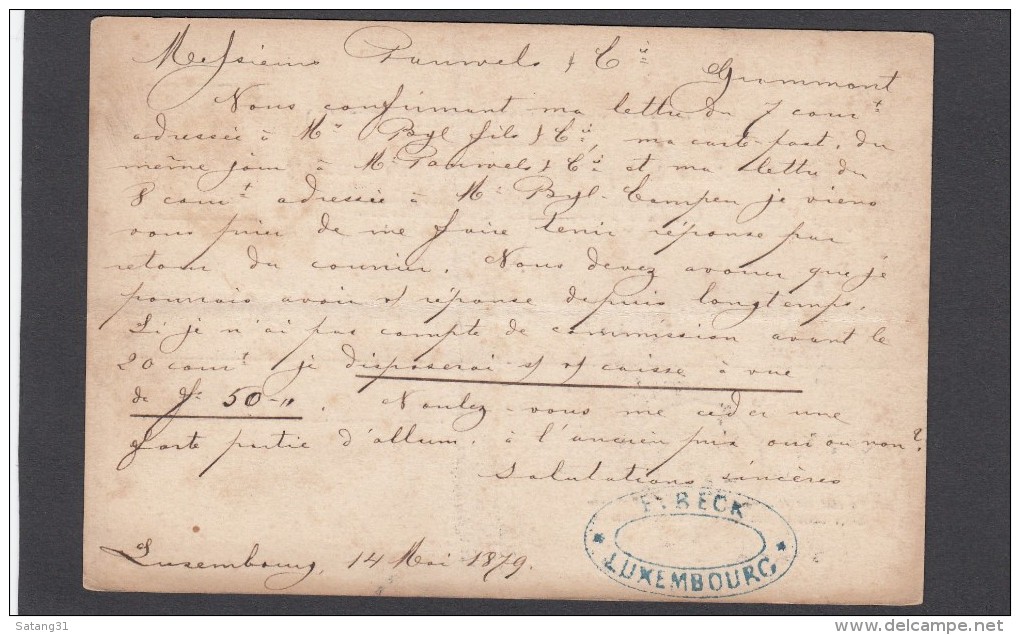 Messieurs Pauwels & Cie Grammont
Nous confirmant ma lettre du 7 court
adressée à Mrs Byl fils & Cie, ma carte-post. du
même jour à Mr Pauwels & Cie et ma lettre du
8 court adressée à Mr Byl-Campen je viens
vous prier de me faire tenir réponse par
retour du courrier. Vous devez avouer que je
pourrais avoir v/ réponse depuis longtemps.
Si je n'ai pas compte de commission avant le
20 court je disposerai s/ v/ caisse à vue
de fr 50-,, . Voulez-vous me céder une
forte partie d'allum. à l'ancien prix oui ou non?
Salutations sincères
Luxembourg, 14 Mai 1879.
BECK
LUXEMBOURG
Satang31
www.delcampe.net